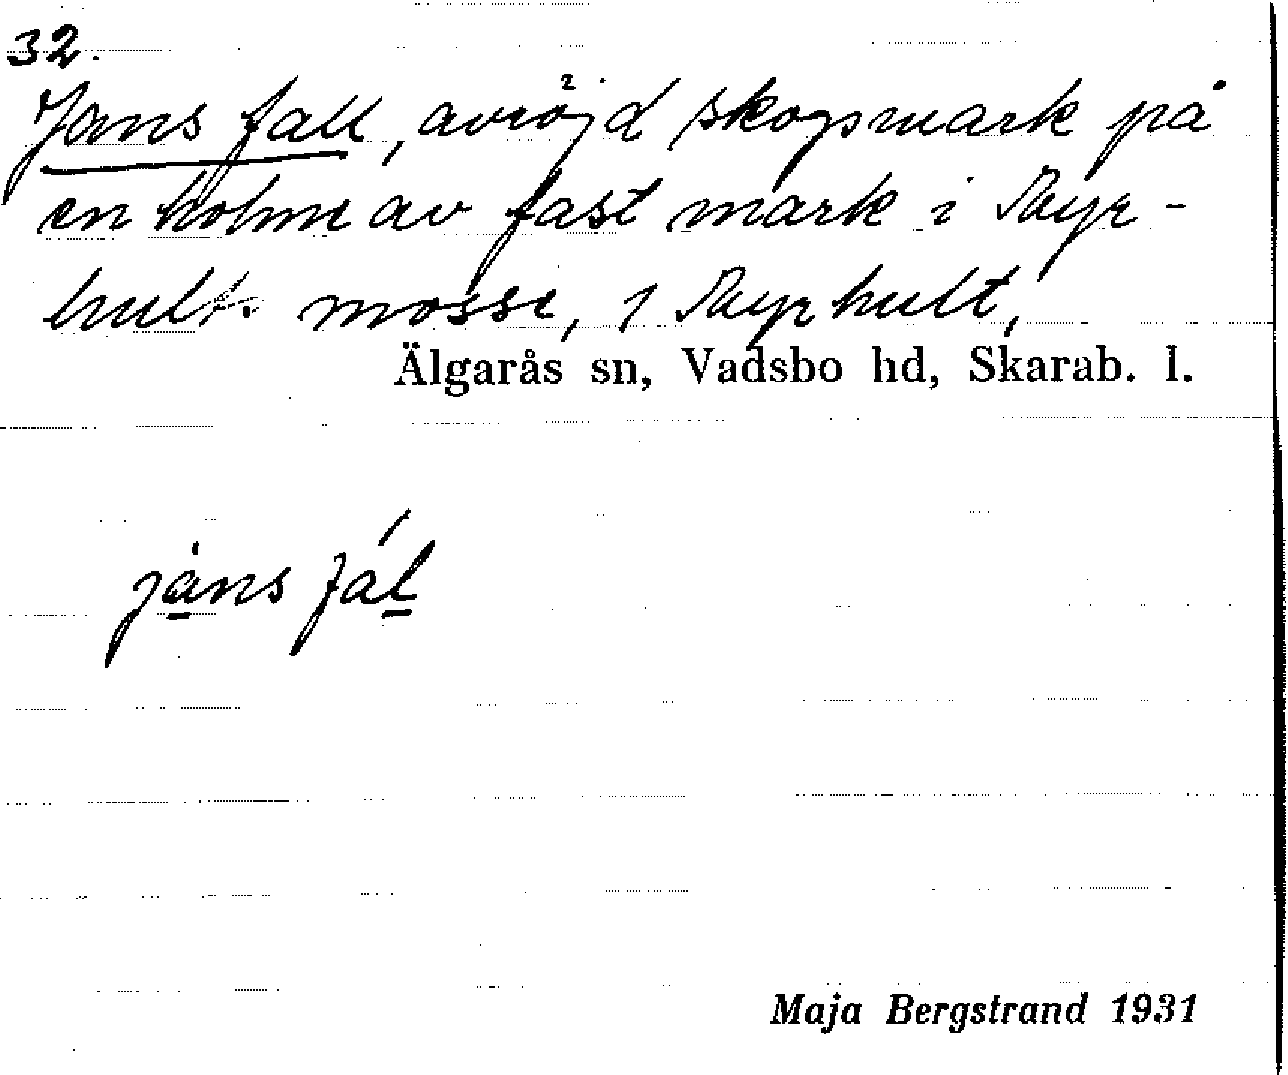 32.
Jans fall, avröjd skogsmark på
en holme av fast mark i Myr-
hults mosse, 1 Myrhult,
Älgarås sn, Vadsbo hd, Skarab. l.
jàns fál
Maja Bergstrand 1931